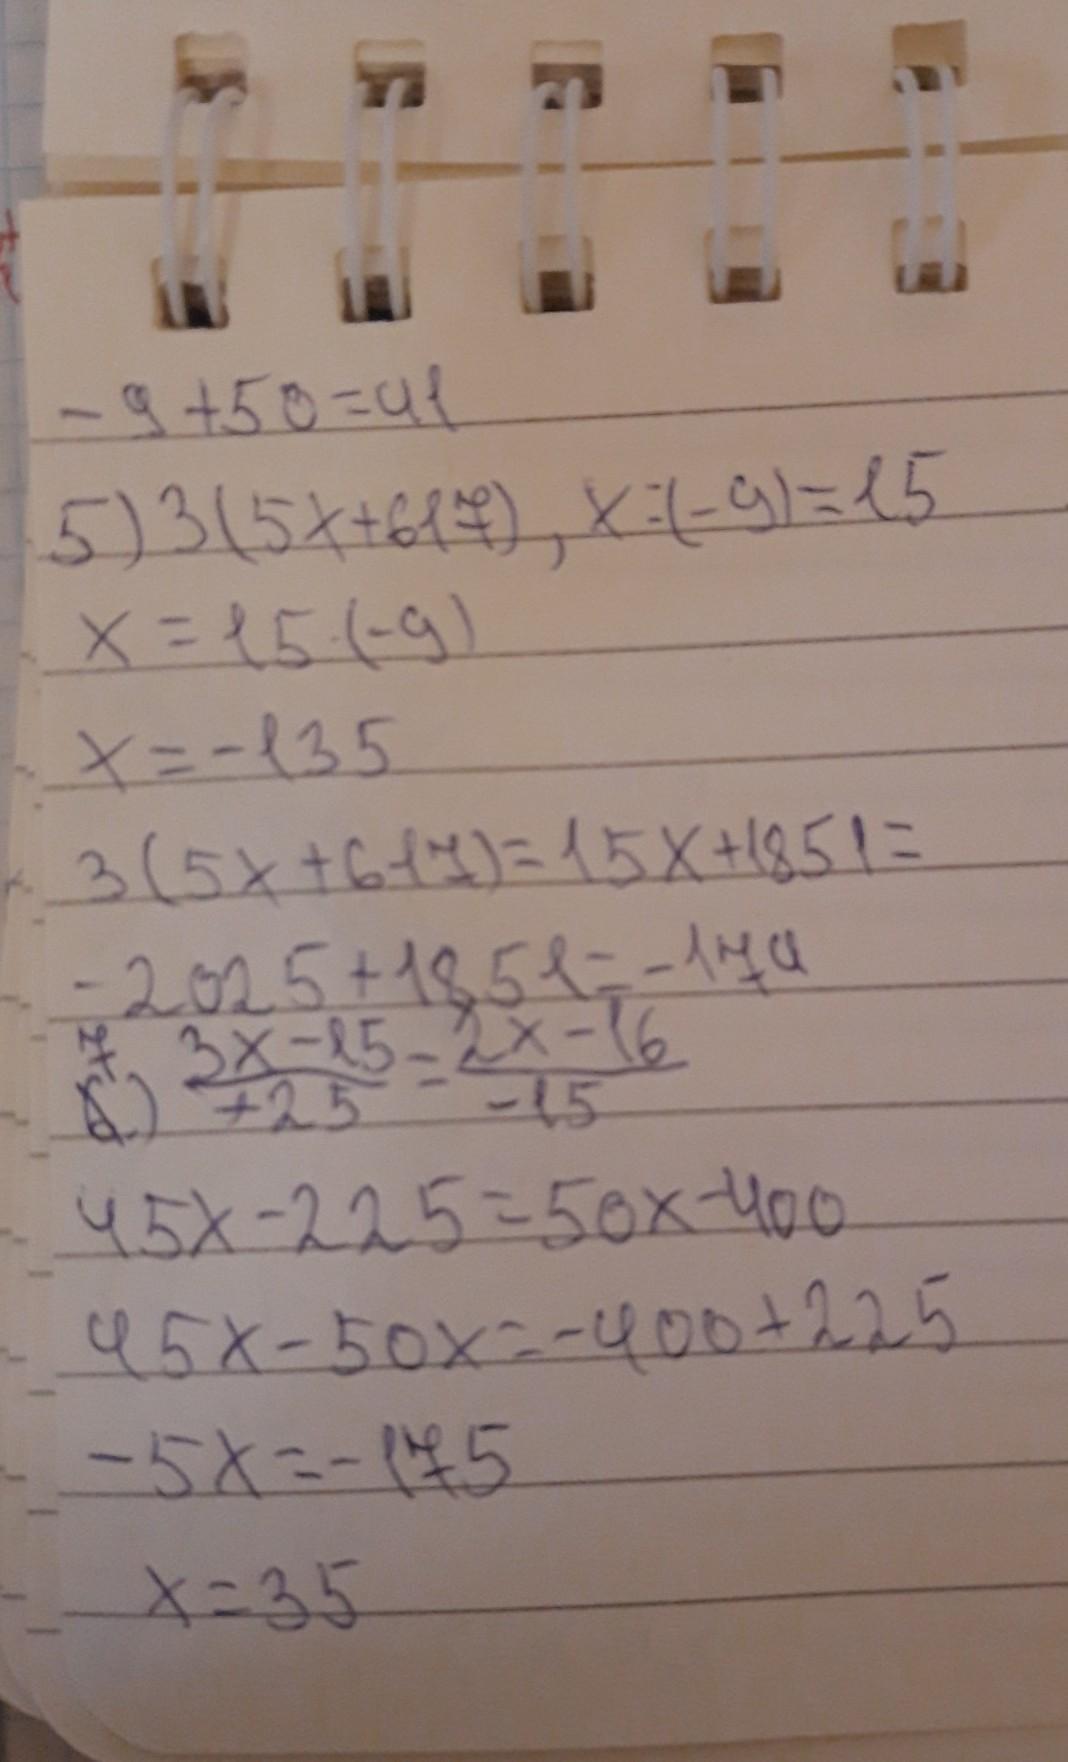 -9+50=41
5) 3(5x+617), x:(-9)=15
x=15·(-9)
x=-135
3(5x+617)=15x+1851=
-2025+1851=-174
7) (3x-15)/(+25) = (2x-16)/(-15)
45x-225=50x-400
45x-50x=-400+225
-5x=-175
x=35